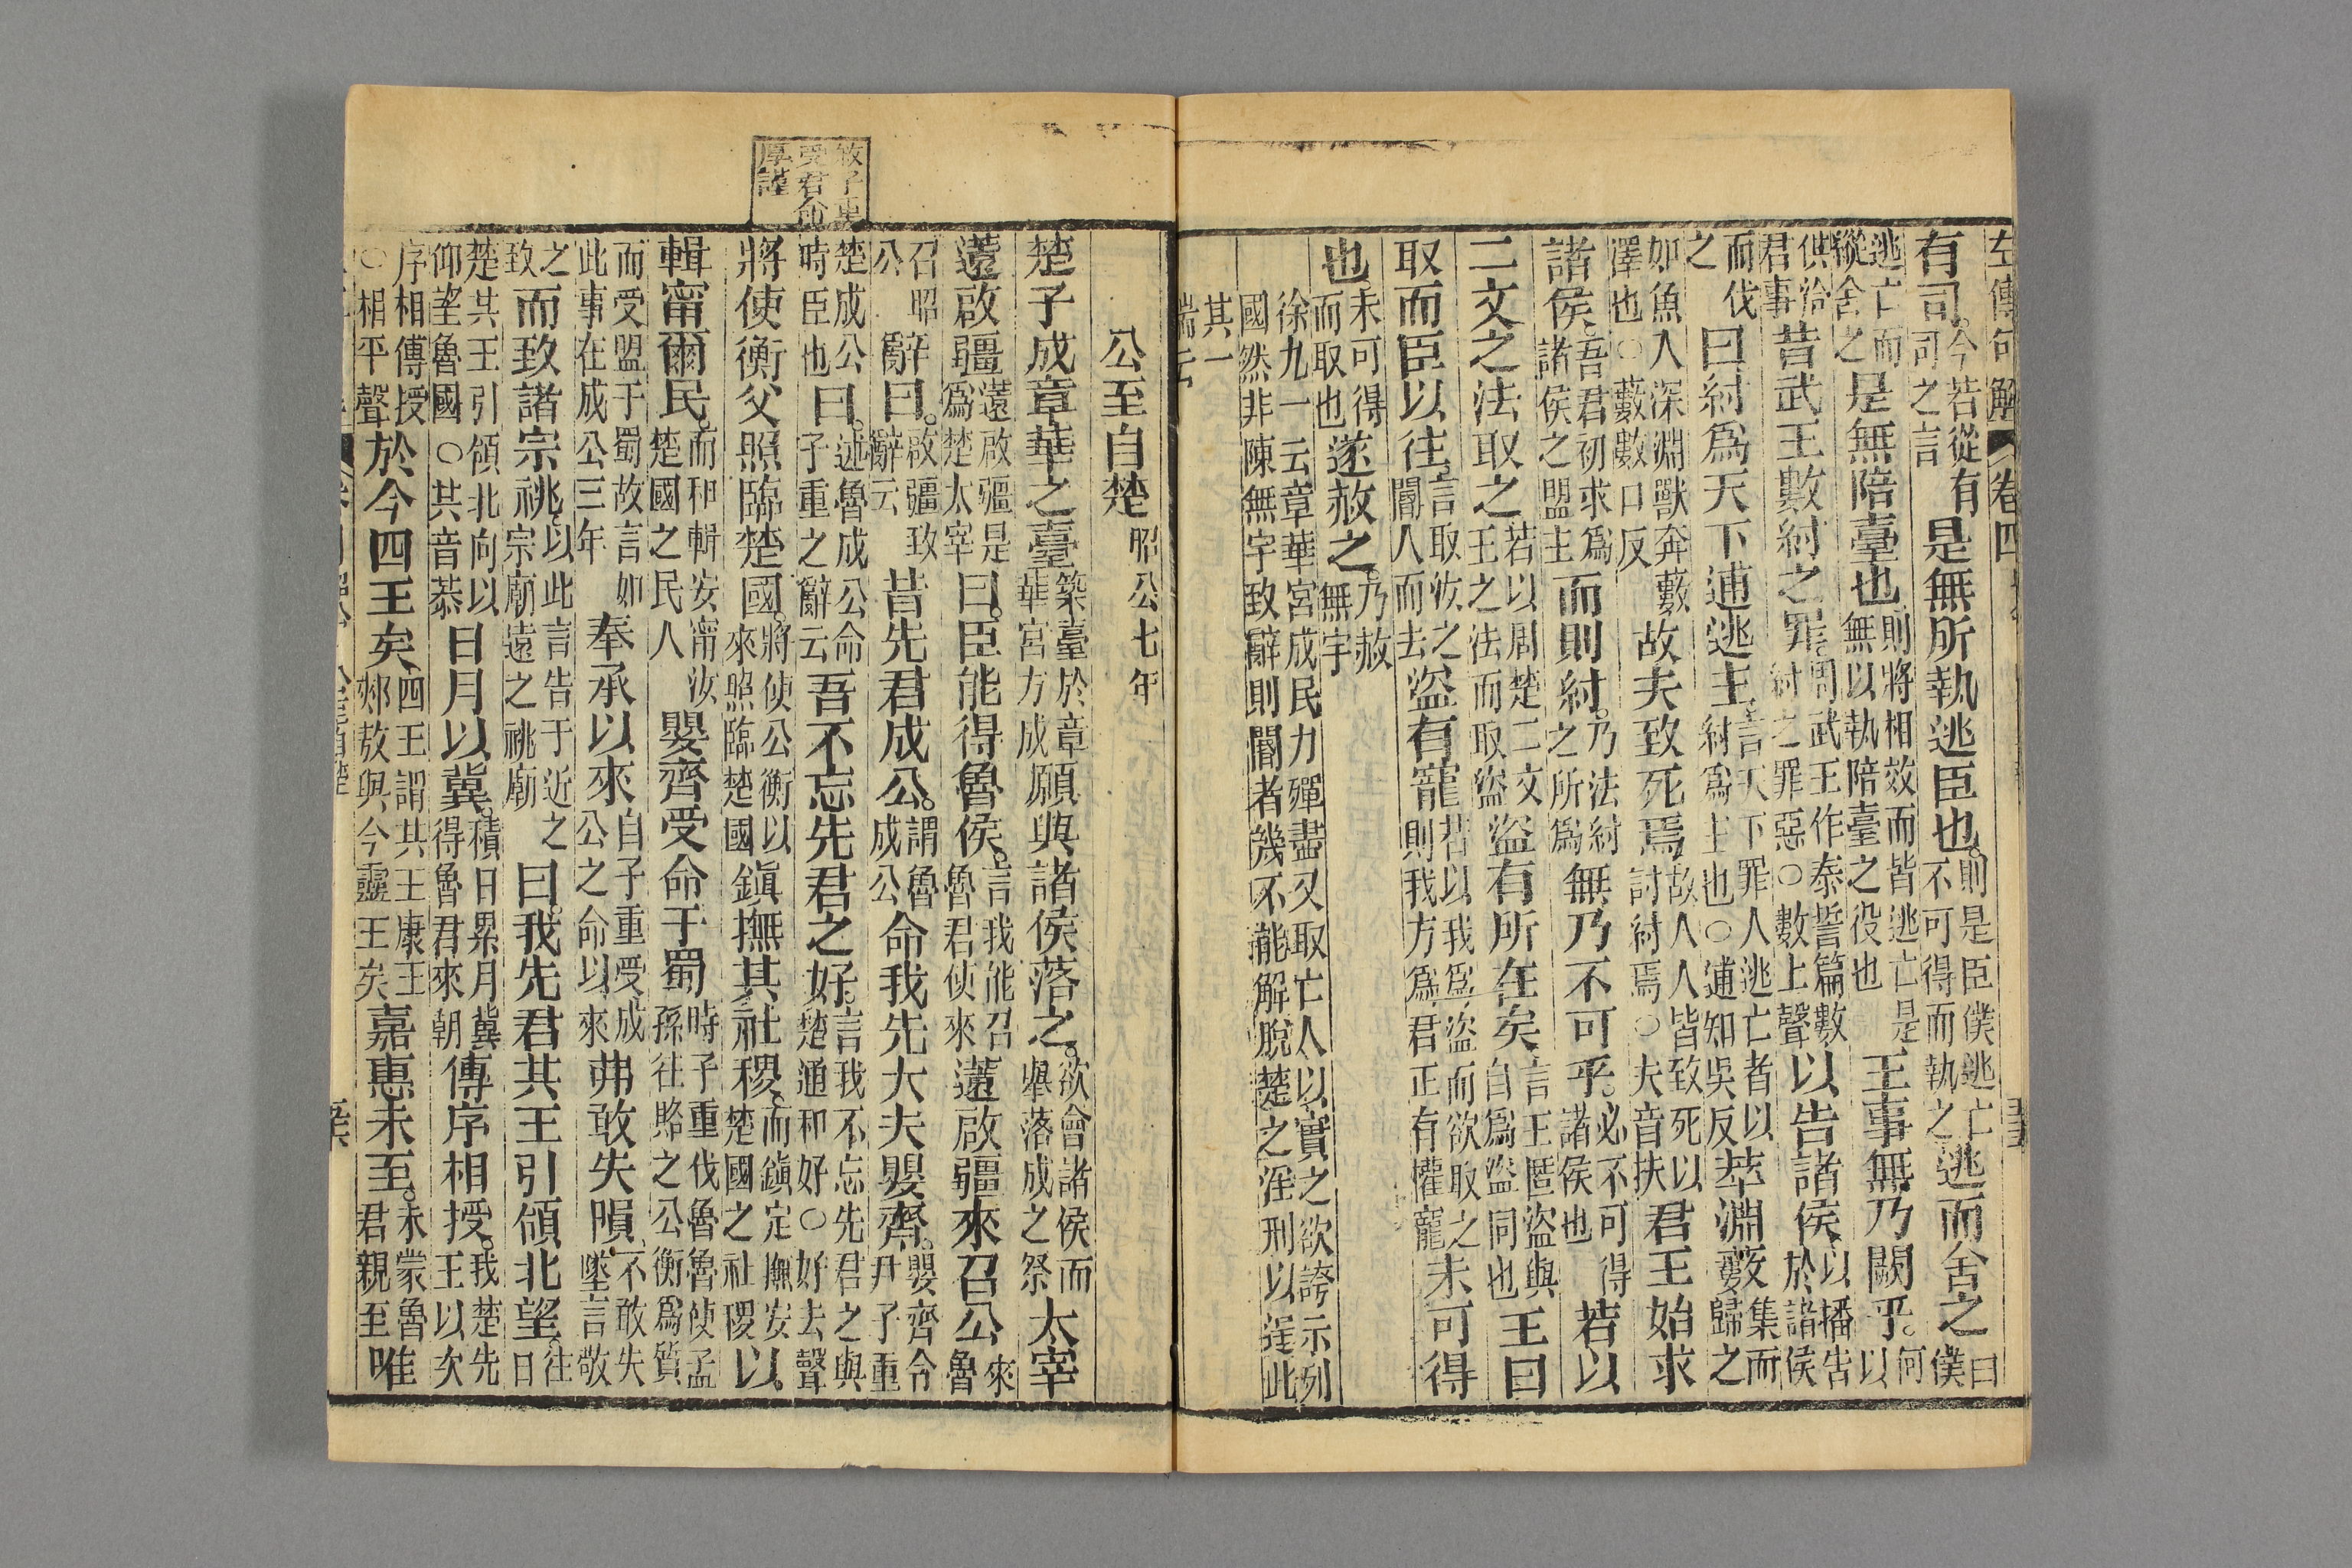 左傳句解 卷四
有司。今若從有司之言是無所執逃臣也。則是臣僕逃亡不可得而執之逃而舍之曰僕
逃亡而縱舍之是無陪臺也則將相效而皆逃亡是無以執陪臺之役也王事無乃闕乎。何以
供給君事昔武王數紂之罪。周武王作泰誓篇數紂之罪惡○數上聲以告諸侯以播告於諸侯
而伐之曰紂爲天下逋逃主言天下罪人逃亡者以紂爲主也○逋知吳反萃淵藪集而歸之
如魚入深淵獸奔藪澤也○藪數口反故夫致死焉故人人皆致死以討紂焉○夫音扶君王始求
諸侯吾君初求爲諸侯之盟主而則紂。乃法紂之所爲無乃不可乎。必不可得諸侯也若以
二文之法取之若以周楚二文王之法而取盜盜有所在矣言王匿盜與自爲盜同也王曰
取而臣以往言取汝之閽人而去盜有寵若以我爲盜而欲取之則我方爲君正有權寵未可得
也未可得而取也遂赦之。乃赦無宇
徐九一云章華宮成民力殫盡又取亡人以實之欲誇示列
國然非陳無宇致辭則閽者幾不能解脫楚之淫刑以逞此
其一端云
公至自楚昭公七年
楚子成章華之臺築臺於章華宮方成願與諸侯落之。欲會諸侯而舉落成之祭太宰
薳啟疆薳啟疆是爲楚太宰曰。臣能得魯侯。言我能召魯君使來薳啟疆來召公來魯
召昭公辭曰。啟疆致辭云昔先君成公。謂魯成公命我先大夫嬰齊。嬰齊令尹子重
楚成公時臣也曰。述魯成公命子重之辭云吾不忘先君之好。言我不忘先君之與楚通和好○好去聲
將使衡父照臨楚國。將使公衡以來照臨楚國鎮撫其社稷。而鎮定撫安楚國之社稷以
輯甯爾民。而和輯安甯汝楚國之民人嬰齊受命于蜀時子重伐魯魯使孟孫往賂之公衡爲質
而受盟于蜀故言如此事在成公三年奉承以來自子重受成公之命以來弗敢失隕不敢失墜言敬
之致而致諸宗祧以此言告于近之宗廟遠之祧廟曰。我先君共王引領北望。往日
楚共王引領北向以仰望魯國○共音恭日月以冀。積日累月冀得魯君來朝傳序相授。我楚先王以次
序相傳授○相平聲於今四王矣四王謂共王康王郟敖與今靈王矣嘉惠未至。未蒙魯君親至唯
敘子重受君命厚謹